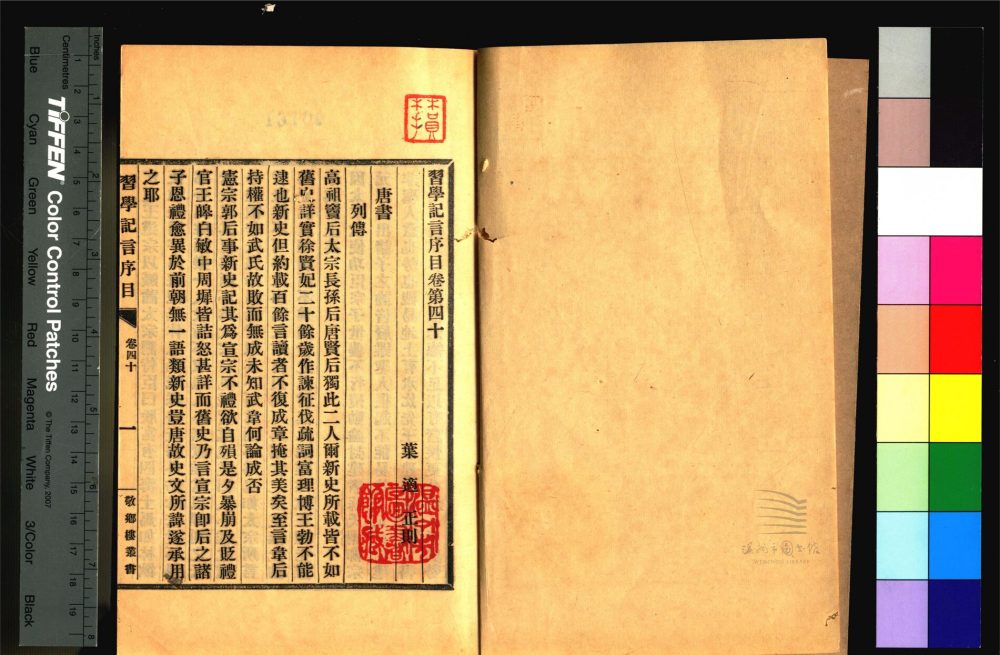 習學記言序目卷第四十
葉適 正則
唐書
列傳
高祖竇后太宗長孫后唐賢后獨此二人爾新史所載皆不如
舊史詳實徐賢妃二十餘歲作諫征伐疏詞富理博王勃不能
逮也新史但約載百餘言讀者不復成章掩其美矣至言韋后
持權不如武氏故敗而無成未知武韋何論成否
憲宗郭后事新史記其爲宣宗不禮欲自殞是夕暴崩及貶禮
官王皡白敏中周墀皆詰怒甚詳而舊史乃言宣宗卽后之諸
子恩禮愈異於前朝無一語類新史豈唐故史文所諱遂承用
之耶
習學記言序目
卷四十
一
敬鄉樓叢書
溫州市圖書館
WENZHOU LIBRARY
Inches
Centimetres
TIFFEN Color Control Patches
© The Tiffen Company, 2007
Blue Cyan Green Yellow Red Magenta White 3/Color Black
1 2 3 4 5 6 7 8 9 10 11 12 13 14 15 16 17 18 19
1 2 3 4 5 6 7 8